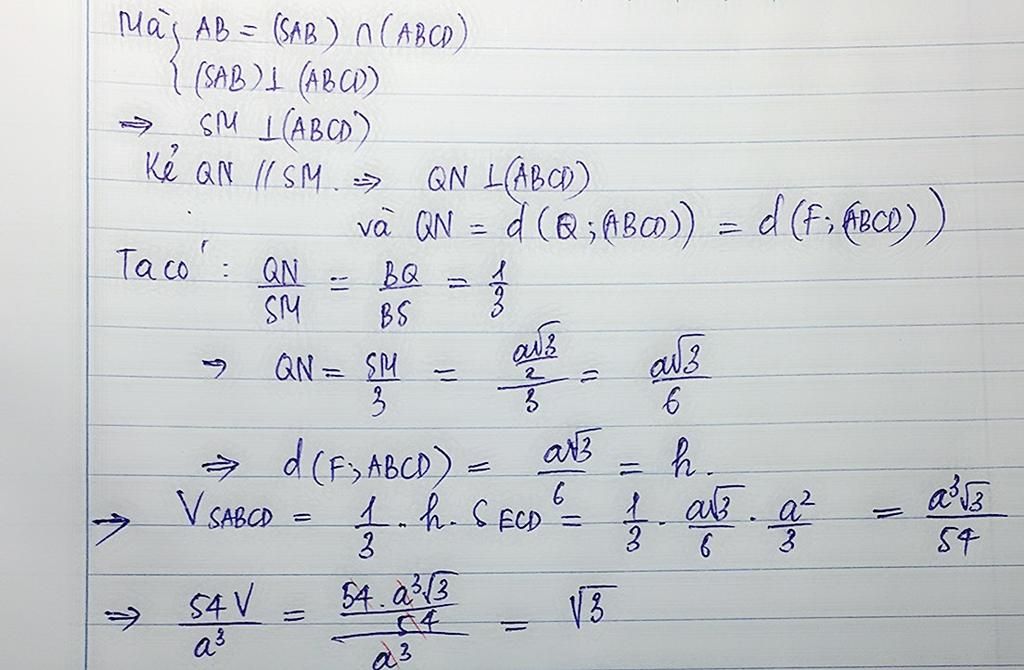 Mà { AB = (SAB) ∩ (ABCD)
{ (SAB) ⊥ (ABCD)
⇒ SM ⊥ (ABCD)
Kẻ QN // SM. ⇒ QN ⊥ (ABCD)
và QN = d(Q; (ABCD)) = d(F; (ABCD))
Ta có: QN/SM = BQ/BS = 1/3
→ QN = SM/3 = (a√3/2)/3 = a√3/6
⇒ d(F; ABCD) = a√3/6 = h.
⇒ V SABCD = 1/3 . h . S ECD = 1/3 . a√3/6 . a²/3 = a³√3/54
⇒ 54V/a³ = (54 . a³√3/54)/a³ = √3